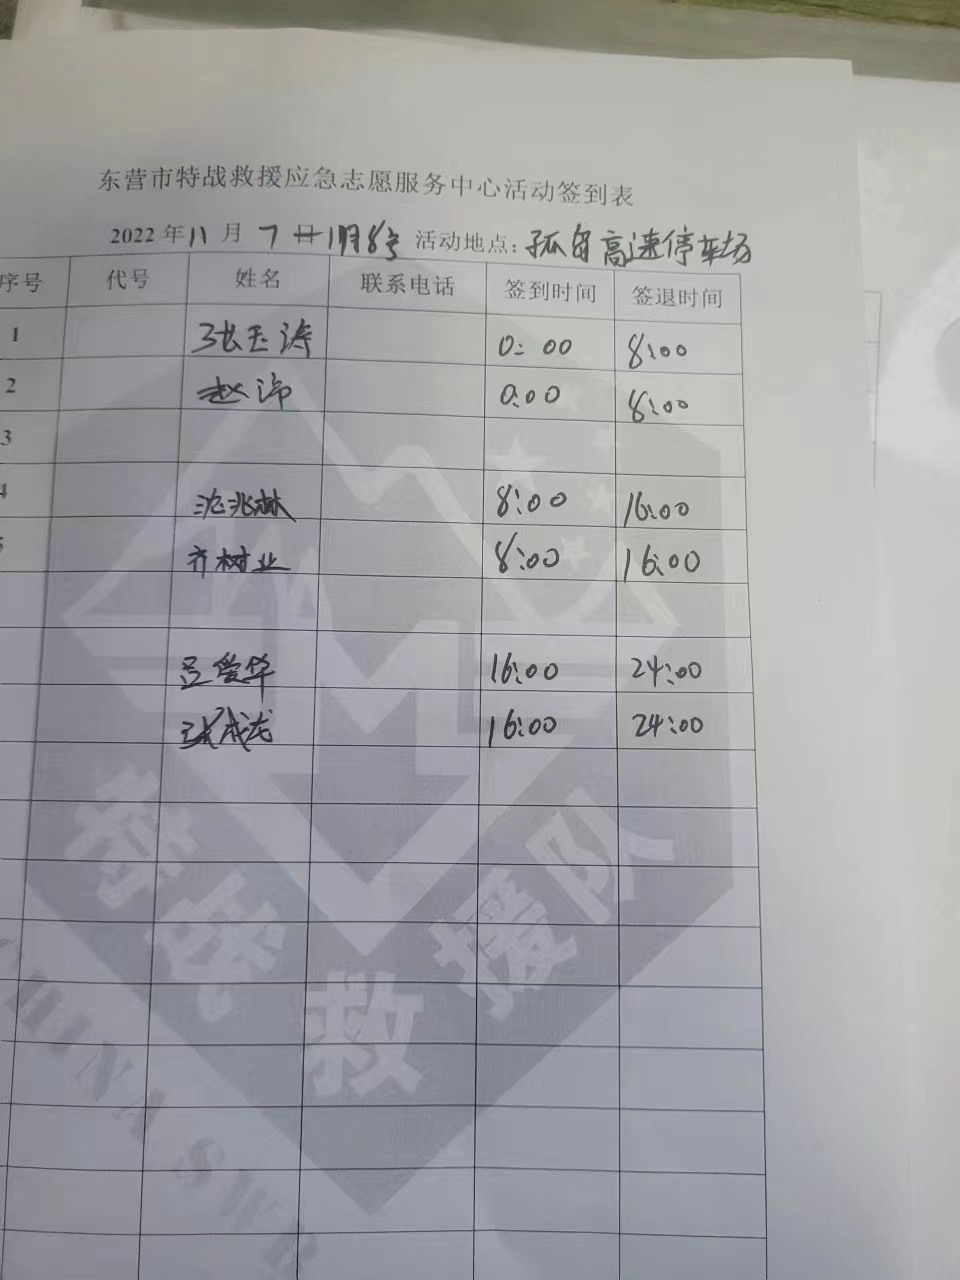 东营市特战救援应急志愿服务中心活动签到表
2022年11月7日-11月8号 活动地点:孤岛高速停车场
序号 代号 姓名 联系电话 签到时间 签退时间
1 张玉涛 0:00 8:00
2 赵沛 0:00 8:00
3
4 沈兆林 8:00 16:00
5 齐树业 8:00 16:00
吕爱华 16:00 24:00
张成龙 16:00 24:00
特战救援队
CHINA SWR